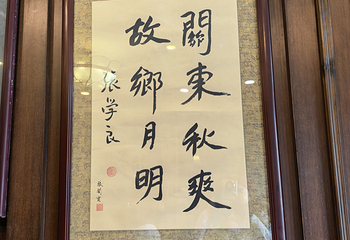 關東秋爽
故鄉月明
張学良